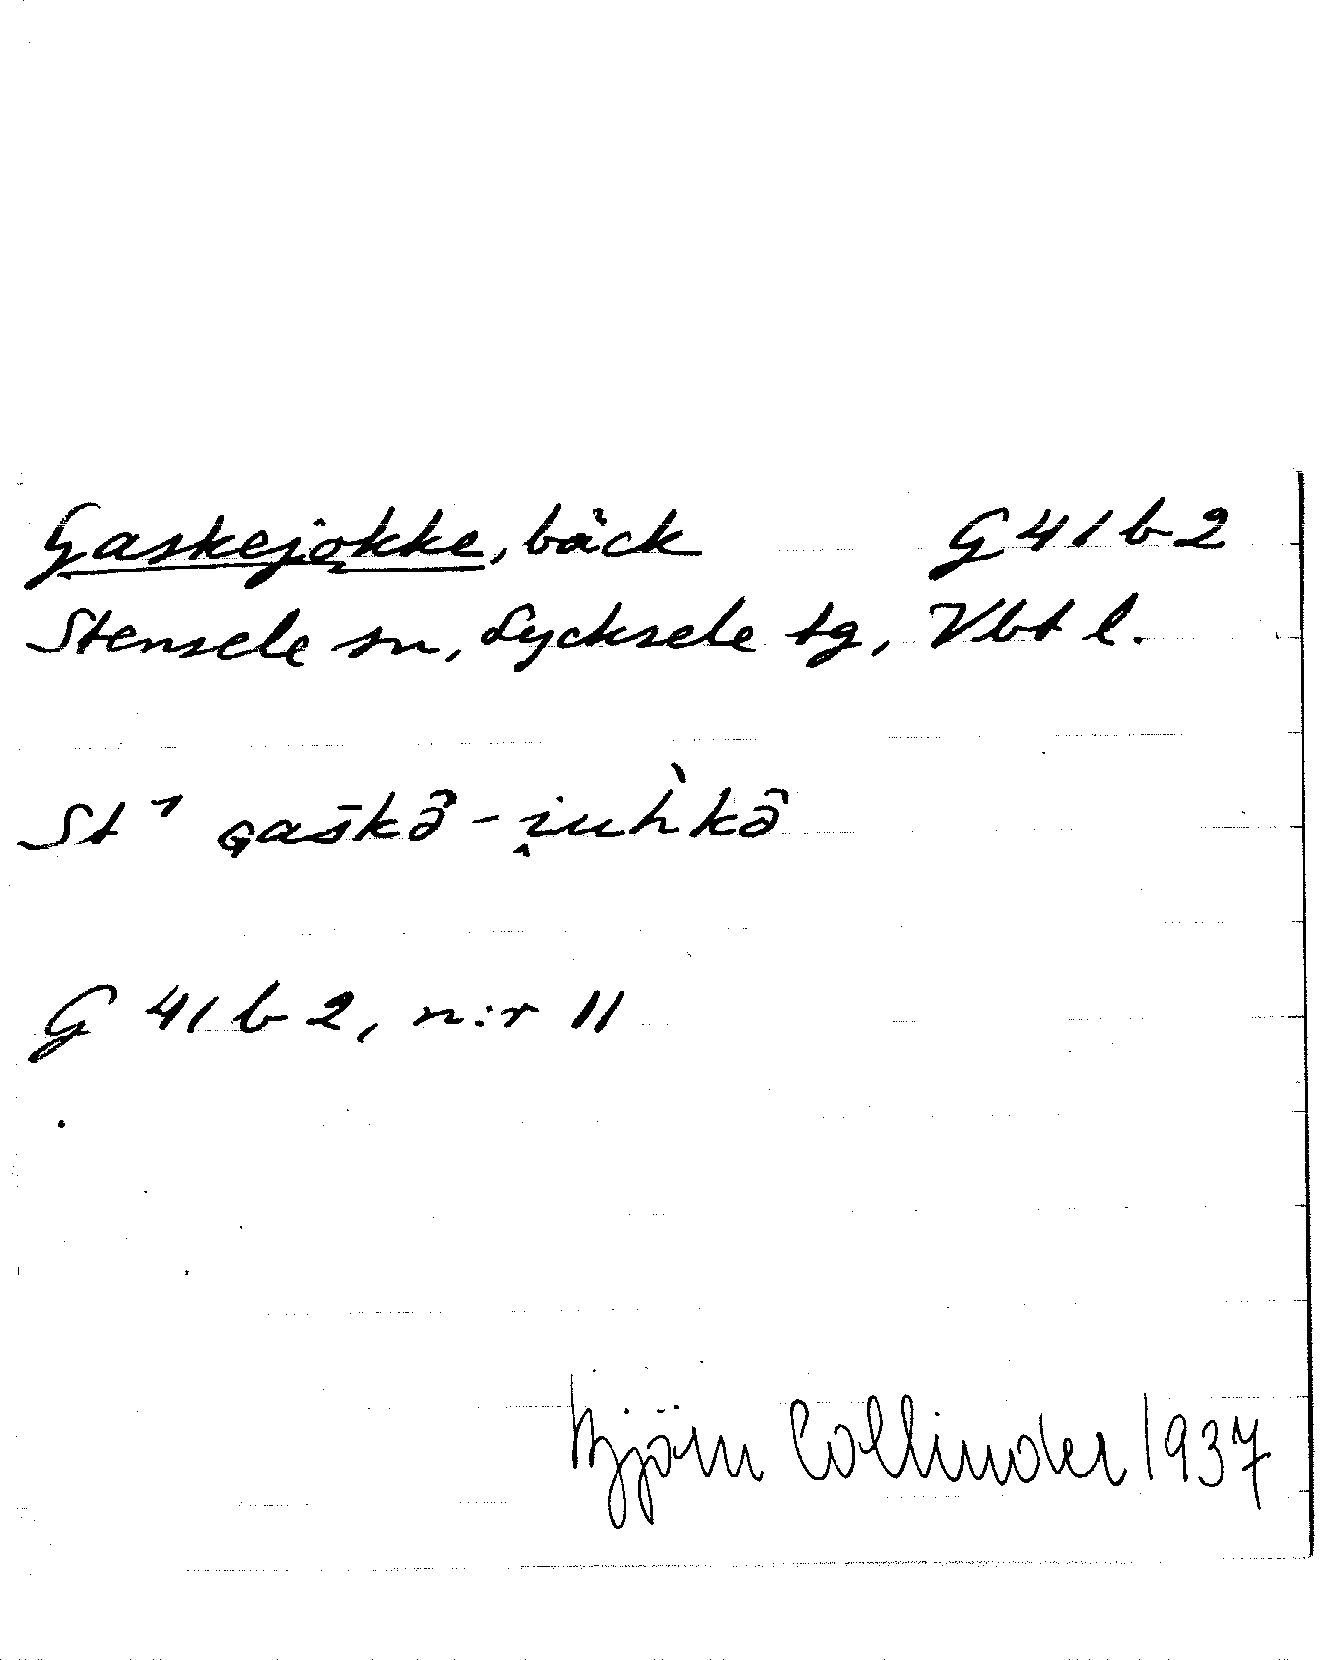 Gaskejǫkke, bäck G 41 b 2
Stensele sn, Lycksele tg, Vbt l.
St ɢas̄kâ - i̭uh̀kâ
G 41 b 2, n:r 11
Björn Collinder 1937